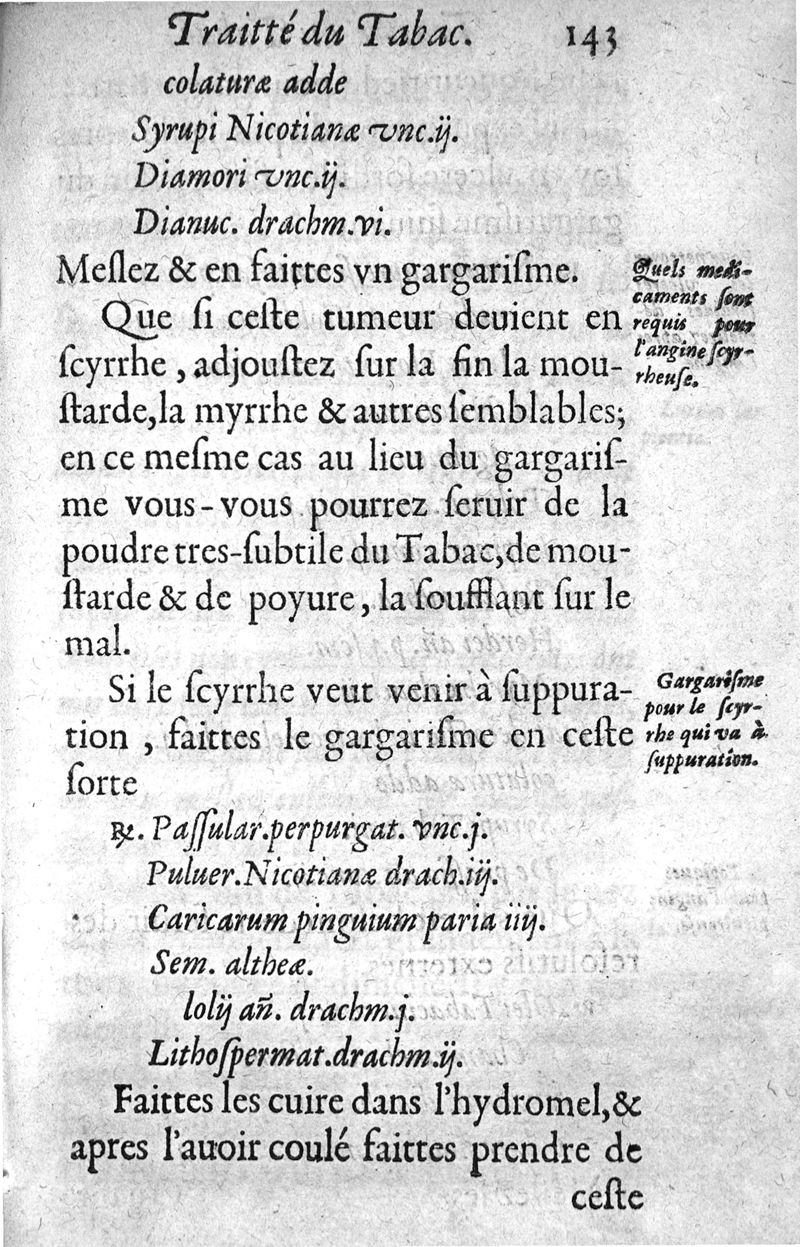 Traitté du Tabac. 143
colaturæ adde
Syrupi Nicotianæ vnc.ij.
Diamori vnc.ij.
Dianuc. drachm.vi.
Meſlez & en faittes vn gargariſme.
Que ſi ceſte tumeur deuient en
ſcyrrhe, adjouſtez ſur la fin la mou-
ſtarde, la myrrhe & autres ſemblables;
en ce meſme cas au lieu du gargariſ-
me vous-vous pourrez ſeruir de la
poudre tres-ſubtile du Tabac, de mou-
ſtarde & de poyure, la ſoufflant ſur le
mal.
Quels medi-
caments ſont
requis pour
l'angine ſcyr-
rheuſe.
Si le ſcyrrhe veut venir à ſuppura-
tion, faittes le gargariſme en ceſte
ſorte
Gargariſme
pour le ſcyr-
rhe qui va à
ſuppuration.
℞. Paſſular.perpurgat. vnc.j.
Puluer.Nicotianæ drach.iij.
Caricarum pinguium paria iiij.
Sem. altheæ.
lolij añ. drachm.j.
Lithoſpermat.drachm.ij.
Faittes les cuire dans l'hydromel, &
apres l'auoir coulé faittes prendre de
ceſte